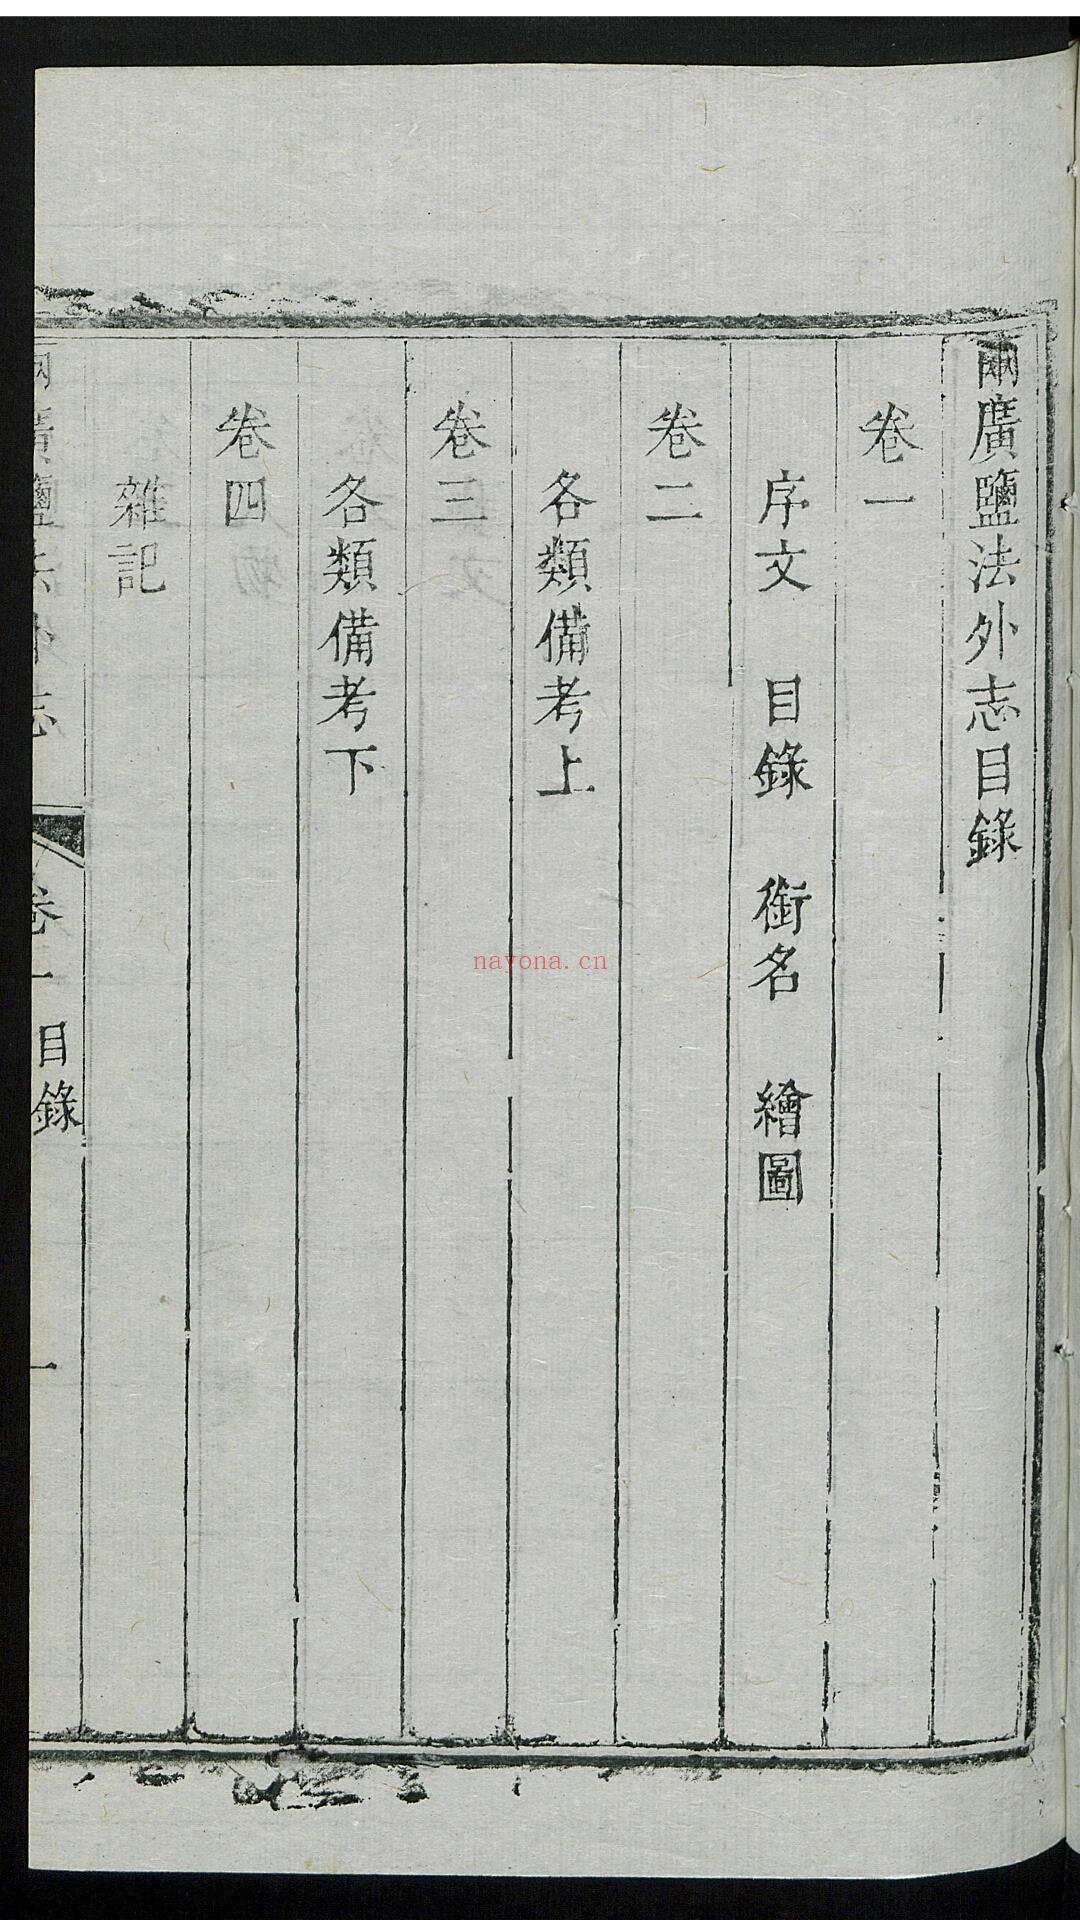 兩廣鹽法外志目錄
卷一
序文 目錄 銜名 繪圖
卷二
各類備考上
卷三
各類備考下
卷四
雜記
兩廣鹽法外志 卷一 目錄 一
nayona.cn